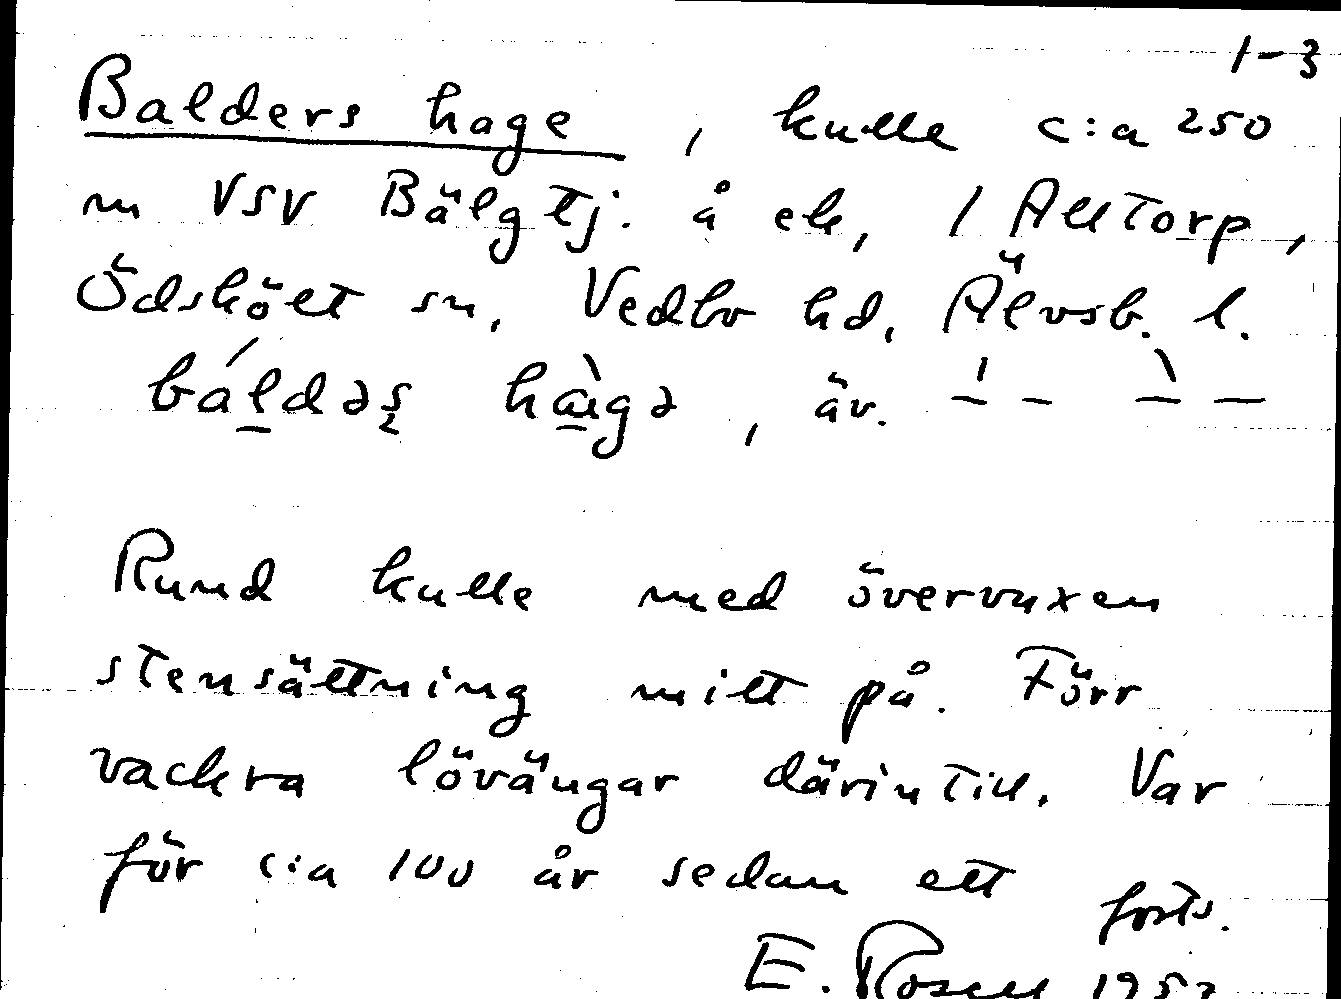 1-3
Balders hage, kulle c:a 250
m VSV Bälgtj. å ek, 1 Alltorp,
Ödskölt sn, Vedbo hd, Älvsb. l.
báldəʂ hàgə, äv. –́ – –̀ –
Rund kulle med övervuxen
stensättning mitt på. Förr
vackra lövängar därintill. Var
för c:a 100 år sedan ett
forts.
E. Rosell 1953